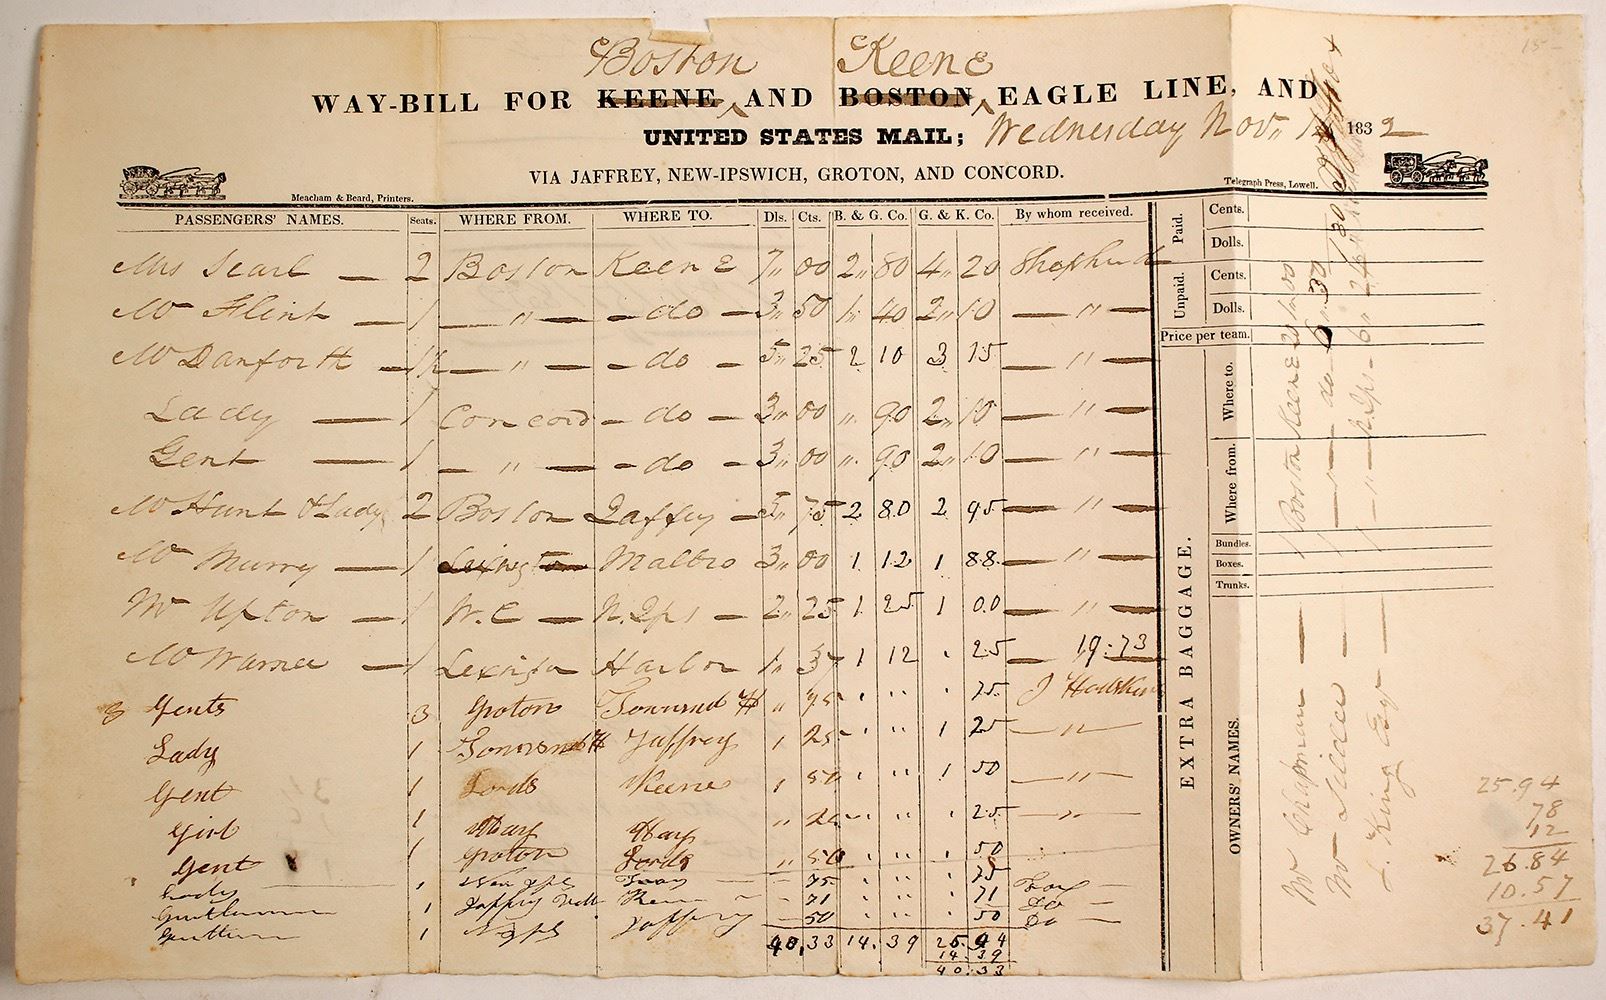 Boston Keene
WAY-BILL FOR KEENE AND BOSTON EAGLE LINE, AND
UNITED STATES MAIL; Wednesday Nov. 1832
VIA JAFFREY, NEW-IPSWICH, GROTON, AND CONCORD.
Meacham & Beard, Printers. Telegraph Press, Lowell.
PASSENGERS' NAMES. Seats. WHERE FROM. WHERE TO. Dls. Cts. B. & G. Co. G. & K. Co. By whom received.
Mrs Searl — 2 Boston Keene 7 " 00 2 " 80 4 " 20 Shepherd
Mr Flint — 1 — " — - do - 3 " 50 1 " 40 2 " 10 — " —
Mr Danforth — 1½ — " — - do - 5 " 25 2 10 3 15 — " —
Lady — 1 Concord - do - 3 " 00 " 90 2 " 10 — " —
Gent — 1 — " — - do - 3 " 00 " 90 2 " 10 — " —
Mr Hunt & Lady 2 Boston Jaffrey — 5 " 75 2 80 2 95 — " —
Mr Murry — 1 Lexington Malbro 3 " 00 1 12 1 88 — " —
Mr Upton — 1 W. C — N. Ips — 2 " 25 1 25 1 00 — " —
Mr Warner — 1 Lexington Harbor 1 " 37 1 12 " 25 — 19.73
3 Gents 3 Groton Townsend H " 75 " " " 75 J Hodskins
Lady 1 Townsend H Jaffrey 1 25 " " 1 25 — " —
Gent 1 Fords Keene 1 50 " " 1 50 — " —
Girl 1 Way Way " 25 " " " 25 — " —
Gent 1 Groton Fords " 50 " " " 50
Lady 1 New Ips — 75 " " 75
Gentleman 1 Jaffrey — 71 " " 71 Do —
Gentlem 1 N Ips Jaffrey — 50 " " 50 Do —
40.33 14.39 25.94
14.39
40.33
EXTRA BAGGAGE.
Paid. Cents.
Dolls.
Unpaid. Cents.
Dolls.
Price per team.
Where to.
Where from.
Bundles.
Boxes.
Trunks.
OWNERS' NAMES.
Mr Chapman — 1 Boston Keene
Mr — 1 — " — do —
King Esqr — 1 — " — N. Ips —
25.94
78
12
26.84
10.57
37.41
15-